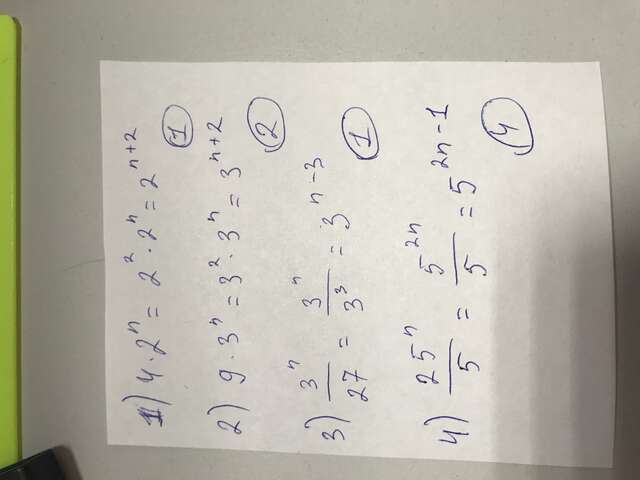 1) 4 · 2ⁿ = 2² · 2ⁿ = 2ⁿ⁺²
1
2) 9 · 3ⁿ = 3² · 3ⁿ = 3ⁿ⁺²
2
3) 3ⁿ/27 = 3ⁿ/3³ = 3ⁿ⁻³
1
4) 25ⁿ/5 = 5²ⁿ/5 = 5²ⁿ⁻¹
4